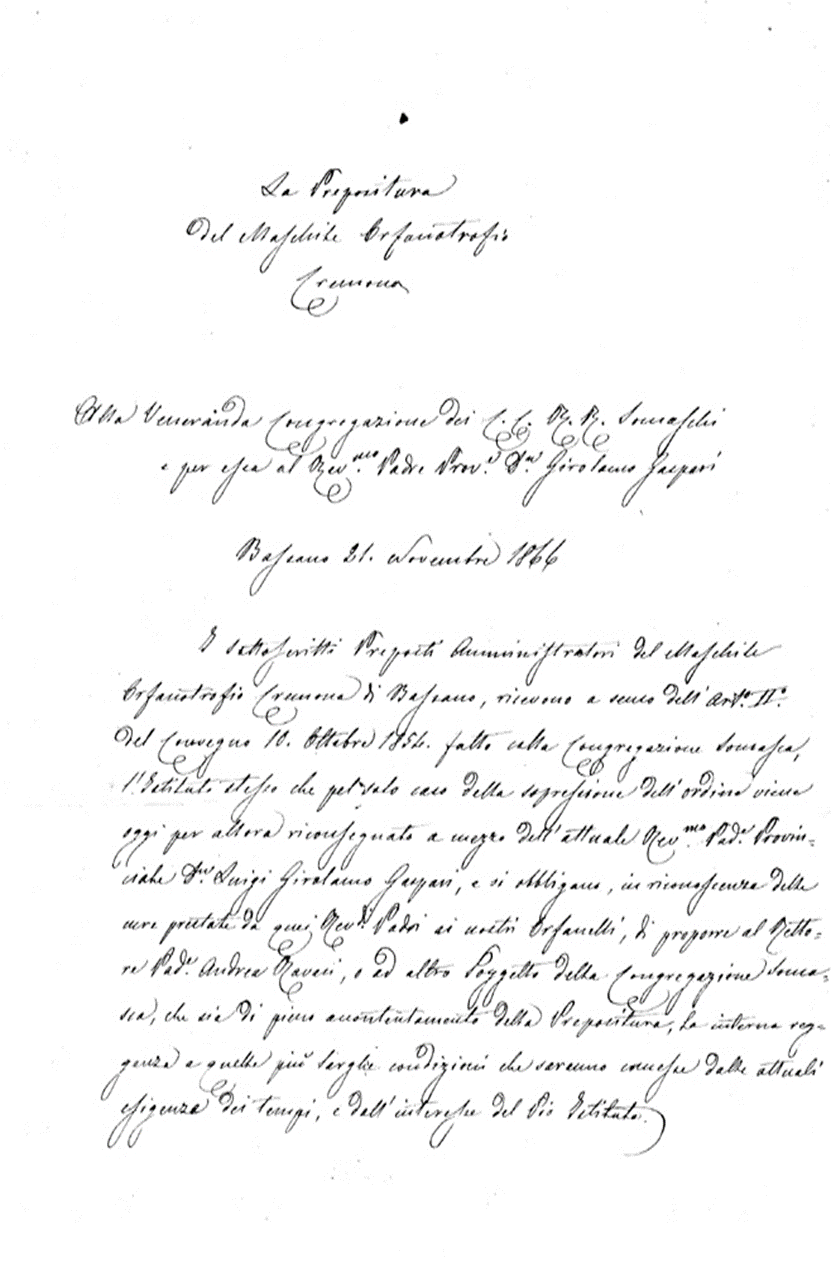 La Prepositura
Del Maschile Orfanotrofio
Cremona
Alla Veneranda Congregazione dei C. C. R. R. Somaschi
e per essa al Rev.mo Padre Prov.e D.n Girolamo Gaspari
Bassano 21. Novembre 1866
I sottoscritti Preposti Amministratori del Maschile
Orfanotrofio Cremona di Bassano, ricevono a senso dell' Art.o II.o
del Convegno 10. Ottobre 1854. fatto colla Congregazione Somasca,
l'Istituto stesso che pel solo caso della sopressione dell' ordine viene
oggi per allora riconsegnato a mezzo dell' attuale Rev.mo Pad.e Provin=
ciale D.n Luigi Girolamo Gaspari, e si obbligano, in riconoscenza delle
cure prestate da quei Rev.di Padri ai nostri Orfanelli, di proporre al Retto=
re Pad.e Andrea Ravasi, o ad altro Soggetto della Congregazione Soma=
sca, che sia di pieno accontentamento della Prepositura, la interna reg=
genza a quelle più larghe condizioni che saranno concesse dalle attuali
esigenze dei tempi, e dall' interesse del Pio Istituto.